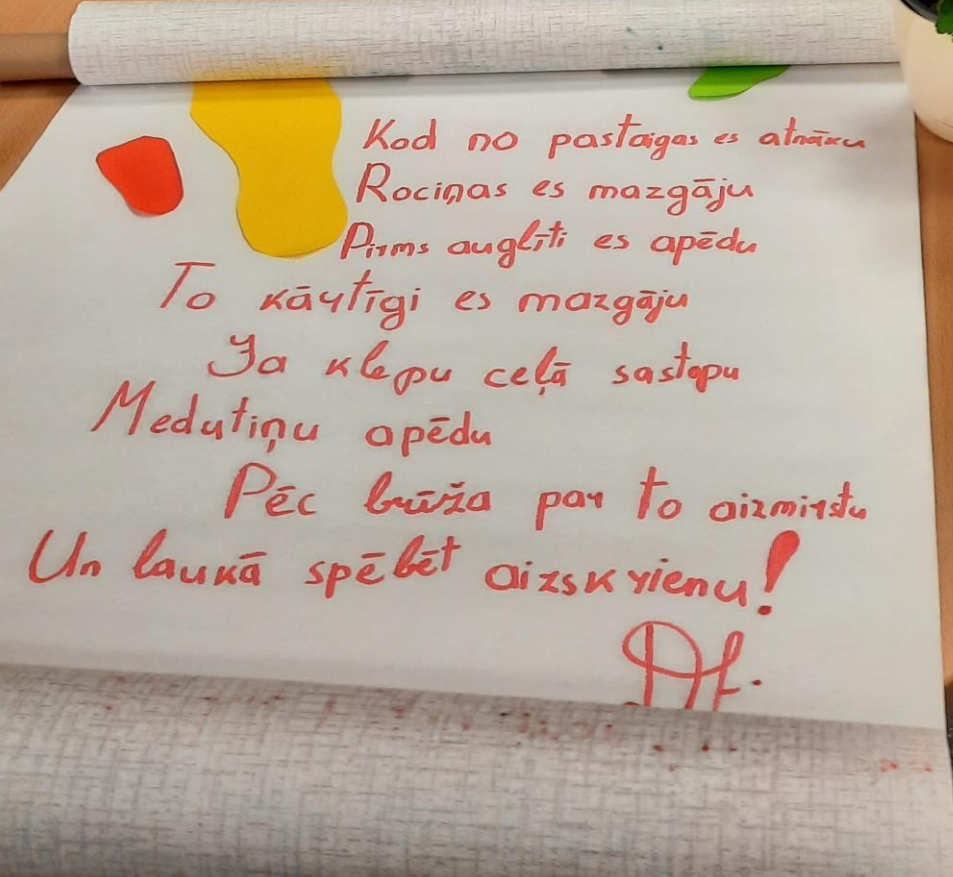 Kad no pastaigas es atnāku
Rociņas es mazgāju
Pirms auglīti es apēdu
To kārtīgi es mazgāju
Ja klepu ceļā sastapu
Medutiņu apēdu
Pēc brīža par to aizmirstu
Un laukā spēlēt aizskrienu!